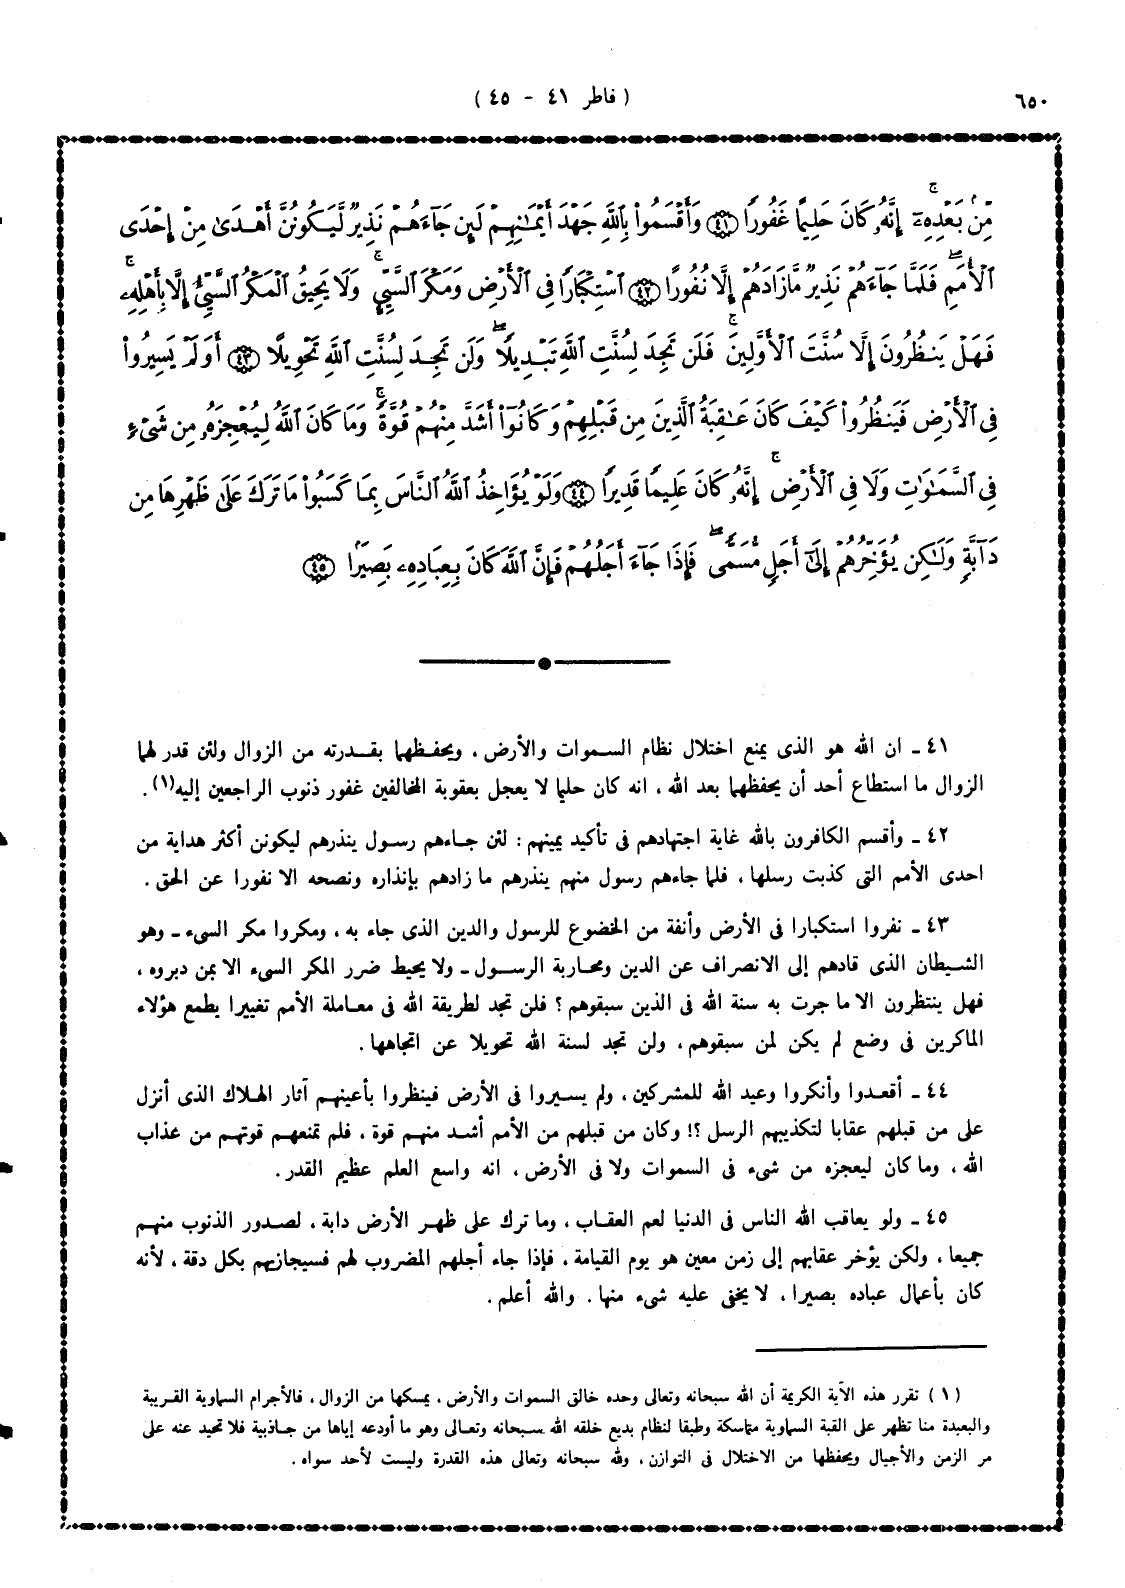 ٦٥٠
( فاطر ٤١ - ٤٥ )
مِّنۢ بَعْدِهِۦٓ ۚ إِنَّهُۥ كَانَ حَلِيمًا غَفُورًا ﴿٤١﴾ وَأَقْسَمُوا۟ بِٱللَّهِ جَهْدَ أَيْمَـٰنِهِمْ لَئِن جَآءَهُمْ نَذِيرٌ لَّيَكُونُنَّ أَهْدَىٰ مِنْ إِحْدَى
ٱلْأُمَمِ ۖ فَلَمَّا جَآءَهُمْ نَذِيرٌ مَّا زَادَهُمْ إِلَّا نُفُورًا ﴿٤٢﴾ ٱسْتِكْبَارًا فِى ٱلْأَرْضِ وَمَكْرَ ٱلسَّيِّئِ ۚ وَلَا يَحِيقُ ٱلْمَكْرُ ٱلسَّيِّئُ إِلَّا بِأَهْلِهِۦ ۚ
فَهَلْ يَنظُرُونَ إِلَّا سُنَّتَ ٱلْأَوَّلِينَ ۚ فَلَن تَجِدَ لِسُنَّتِ ٱللَّهِ تَبْدِيلًا ۖ وَلَن تَجِدَ لِسُنَّتِ ٱللَّهِ تَحْوِيلًا ﴿٤٣﴾ أَوَلَمْ يَسِيرُوا۟
فِى ٱلْأَرْضِ فَيَنظُرُوا۟ كَيْفَ كَانَ عَـٰقِبَةُ ٱلَّذِينَ مِن قَبْلِهِمْ وَكَانُوٓا۟ أَشَدَّ مِنْهُمْ قُوَّةً ۚ وَمَا كَانَ ٱللَّهُ لِيُعْجِزَهُۥ مِن شَىْءٍ
فِى ٱلسَّمَـٰوَٰتِ وَلَا فِى ٱلْأَرْضِ ۚ إِنَّهُۥ كَانَ عَلِيمًا قَدِيرًا ﴿٤٤﴾ وَلَوْ يُؤَاخِذُ ٱللَّهُ ٱلنَّاسَ بِمَا كَسَبُوا۟ مَا تَرَكَ عَلَىٰ ظَهْرِهَا مِن
دَآبَّةٍ وَلَـٰكِن يُؤَخِّرُهُمْ إِلَىٰٓ أَجَلٍ مُّسَمًّى ۖ فَإِذَا جَآءَ أَجَلُهُمْ فَإِنَّ ٱللَّهَ كَانَ بِعِبَادِهِۦ بَصِيرًۢا ﴿٤٥﴾
٤١ ـ ان الله هو الذى يمنع اختلال نظام السموات والأرض ، ويحفظهما بقدرته من الزوال ولئن قدر لهما
الزوال ما استطاع أحد أن يحفظهما بعد الله ، انه كان حليما لا يعجل بعقوبة المخالفين غفور ذنوب الراجعين إليه(١) .
٤٢ ـ وأقسم الكافرون بالله غاية اجتهادهم فى تأكيد يمينهم : لئن جاءهم رسول ينذرهم ليكونن أكثر هداية من
احدى الأمم التى كذبت رسلها ، فلما جاءهم رسول منهم ينذرهم ما زادهم بإنذاره ونصحه الا نفورا عن الحق .
٤٣ ـ نفروا استكبارا فى الأرض وأنفة من الخضوع للرسول والدين الذى جاء به ، ومكروا مكر السىء ـ وهو
الشيطان الذى قادهم إلى الانصراف عن الدين ومحاربة الرسول ـ ولا يحيط ضرر المكر السىء الا بمن دبروه ،
فهل ينتظرون الا ما جرت به سنة الله فى الذين سبقوهم ؟ فلن تجد لطريقة الله فى معاملة الأمم تغييرا يطمع هؤلاء
الماكرين فى وضع لم يكن لمن سبقوهم ، ولن تجد لسنة الله تحويلا عن اتجاهها .
٤٤ ـ أقعدوا وأنكروا وعيد الله للمشركين ، ولم يسيروا فى الأرض فينظروا بأعينهم آثار الهلاك الذى أنزل
على من قبلهم عقابا لتكذيبهم الرسل ؟! وكان من قبلهم من الأمم أشد منهم قوة ، فلم تمنعهم قوتهم من عذاب
الله ، وما كان ليعجزه من شىء فى السموات ولا فى الأرض ، انه واسع العلم عظيم القدر .
٤٥ ـ ولو يعاقب الله الناس فى الدنيا لعم العقاب ، وما ترك على ظهر الأرض دابة ، لصدور الذنوب منهم
جميعا ، ولكن يؤخر عقابهم إلى زمن معين هو يوم القيامة ، فإذا جاء أجلهم المضروب لهم فسيجازيهم بكل دقة ، لأنه
كان بأعمال عباده بصيرا ، لا يخفى عليه شىء منها . والله أعلم .
( ١ ) تقرر هذه الآية الكريمة أن الله سبحانه وتعالى وحده خالق السموات والأرض ، يمسكها من الزوال ، فالأجرام السماوية القريبة
والبعيدة منا تظهر على القبة السماوية متماسكة وطبقا لنظام بديع خلقه الله سبحانه وتعالى وهو ما أودعه إياها من جاذبية فلا تحيد عنه على
مر الزمن والأجيال ويحفظها من الاختلال فى التوازن ، ولله سبحانه وتعالى هذه القدرة وليست لأحد سواه .